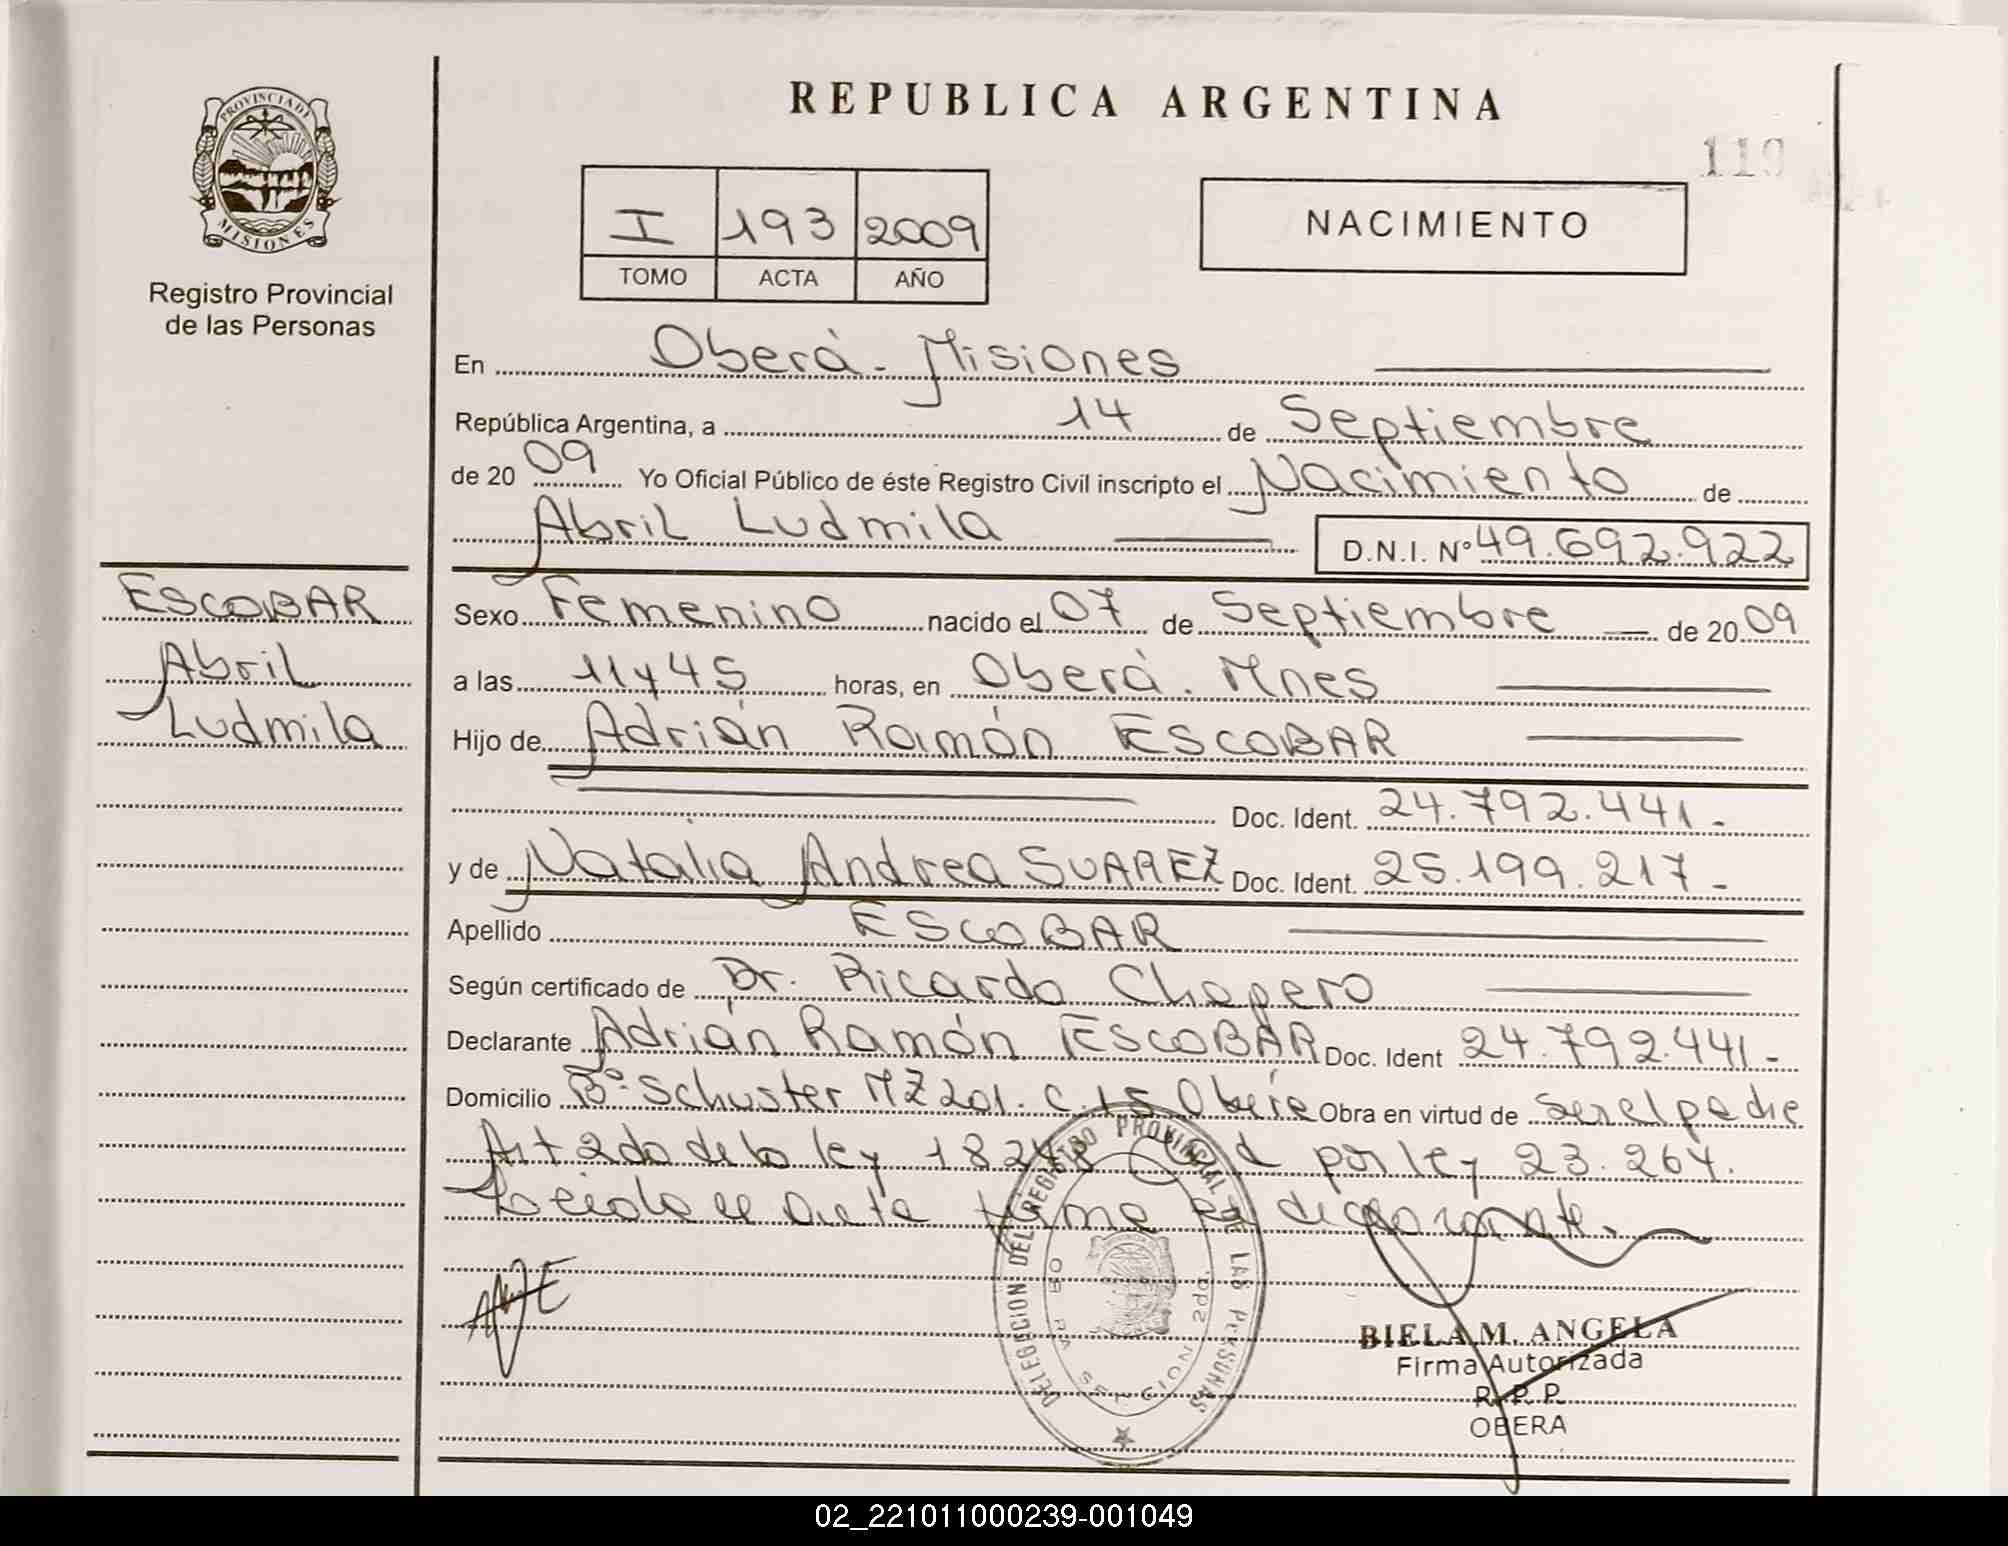 REPUBLICA ARGENTINA
119
PROVINCIA DE
MISIONES
Registro Provincial
de las Personas
I 193 2009
TOMO ACTA AÑO
NACIMIENTO
En Oberá - Misiones
República Argentina, a 14 de Septiembre
de 20 09 Yo Oficial Público de éste Registro Civil inscripto el Nacimiento de
Abril Ludmila D.N.I. Nº 49.692.922
ESCOBAR
Abril
Ludmila
Sexo Femenino nacido el 07 de Septiembre de 20 09
a las 11 y 45 horas, en Oberá. Mnes
Hijo de Adrián Ramón ESCOBAR
Doc. Ident. 24.792.441.-
y de Natalia Andrea SUAREZ Doc. Ident. 25.199.217-
Apellido ESCOBAR
Según certificado de Dr. Ricardo Chapero
Declarante Adrián Ramón ESCOBAR Doc. Ident 24.792.441-
Domicilio Bº Schuster MZ 201. C. 15 Obera Obra en virtud de ser el padre
Art 2do de la ley 18248 por ley 23.264.
Leida el acta firma el declarante.
DELEGACION DEL REGISTRO PROVINCIAL DE LAS PERSONAS
OBERA SECCION 2da.
BIELA M. ANGELA
Firma Autorizada
R. P. P.
OBERA
02_221011000239-001049